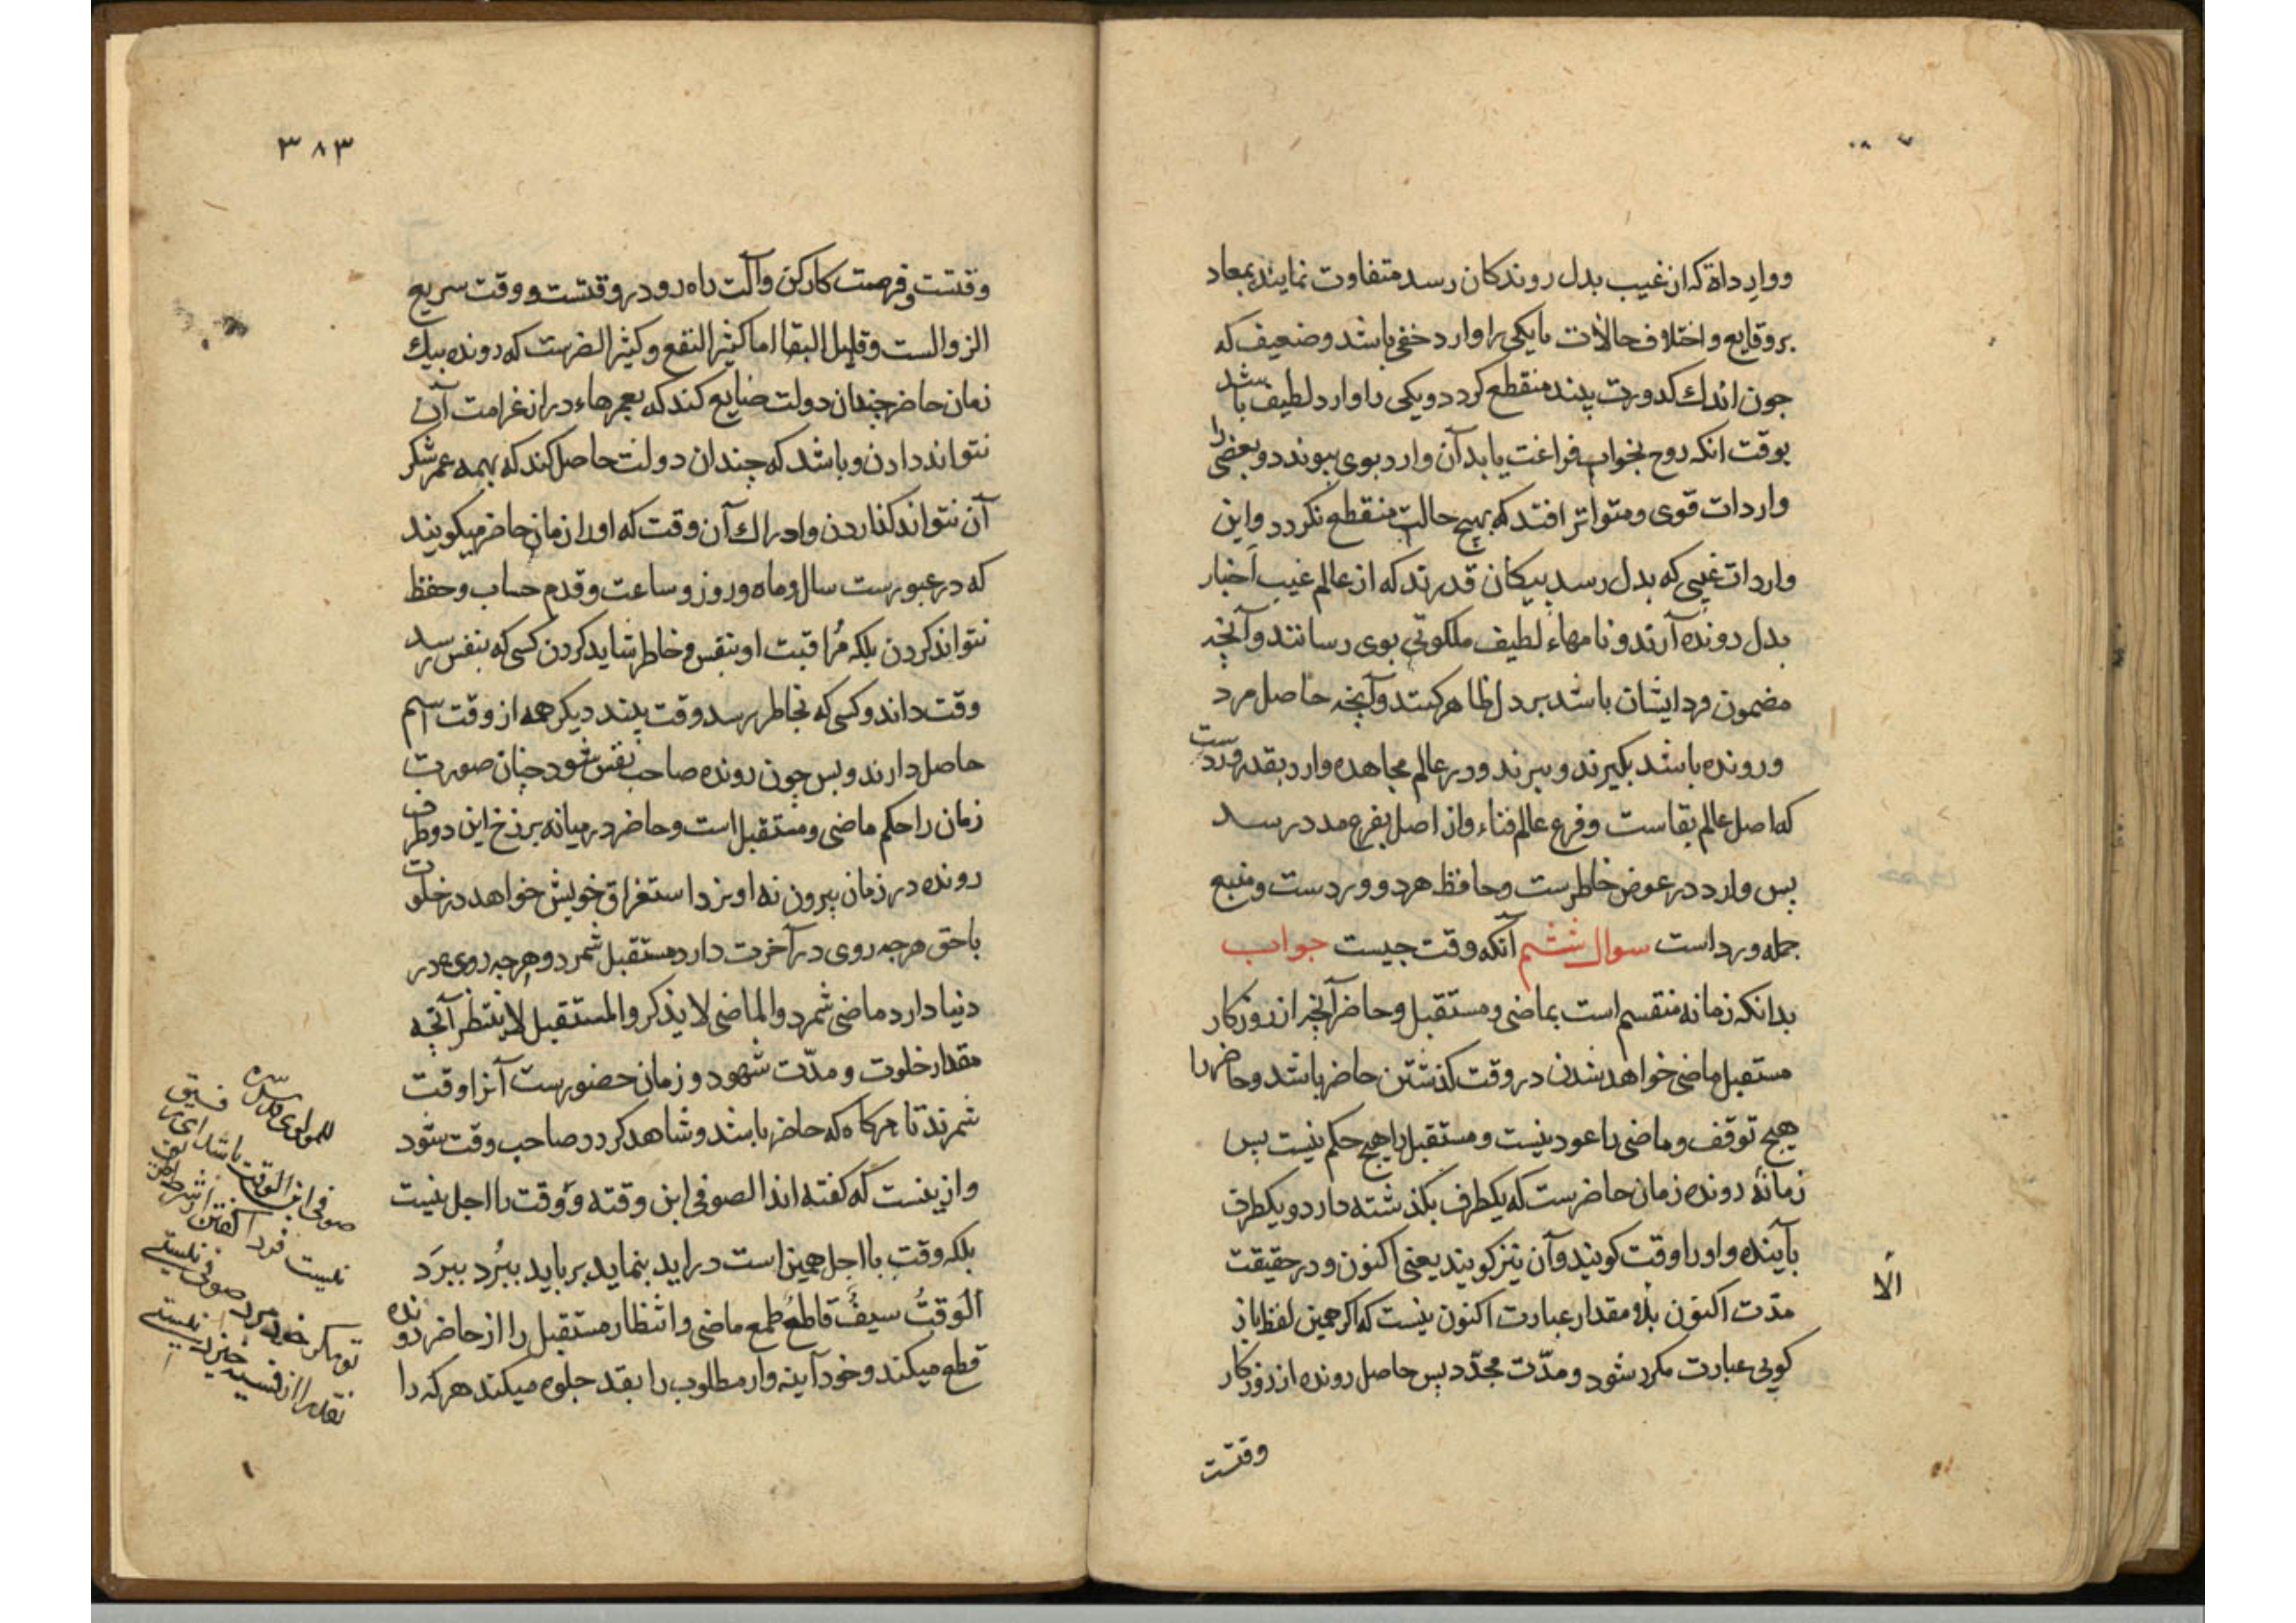 وواردات که از غیب بدل روندکان رسد متفاوت نمایند بمعاد
بر وقایع و اختلاف حالات تا یکی را وارد خفی باشد وضعیف که
جون اندك کدورت بیند منقطع کردد ویکی را وارد لطیف باشد
بوقت انکه روح بخواب فراغت یابد آن وارد بوی پیوندد وبعضی را
واردات قوی ومتواتر افتد که بهیچ حالت منقطع نکردد واین
واردات غیبی که بدل رسد پیکان قدرتند که از عالم غیب اخبار
بدل رونده آرند ونامهاء لطیف ملکوتی بوی رسانند وآنچه
مضمون ورد ایشان باشد بر دل ظاهر کنند وآنچه حاصل مرد
ورونده باشد بکیرند وببرند ودر عالم مجاهده وارد بقدر وردست
که اصل عالم بقاست وفرع عالم فناء واز اصل بفرع مدد رسد
پس وارد در عوض خاطرست وحافظ هر دو وردست ومنبع
جمله ورد است سوال ششم آنکه وقت جیست جواب
بدانکه زمانه منقسم است بماضی ومستقبل وحاضر آنچه از روزکار
مستقبل ماضی خواهد شدن در وقت کذشتن حاضر باشد وحاضر را
هیچ توقف وماضی را عود نیست ومستقبل را هیچ حکم نیست پس
زمانهٔ رونده زمان حاضرست که یکطرف بکذشته دارد ویکطرف
بآینده واورا وقت کویند وآن نیز کویند یعنی اکنون ودر حقیقت
الا
مدّت اکنون بذو مقدار عبارت اکنون نیست که اکر همین لفظ باز
کویی عبارت مکرر شود ومدّت مجدّد پس حاصل رونده از روزکار
وقتست
٣٨٣
وقتست وفرصت کارکن وآلت راه رو در وقتست ووقت سریع
الزوالست وقلیل البقا اما کثیر النفع وکثیر الضرست که رونده بیك
زمان حاضر چندان دولت ضایع کند که بعمرهاء دراز غرامت آن
نتواند دادن وباشد که چندان دولت حاصل کند که بهمه عمر شکر
آن نتواند کذاردن وادراك آن وقت که اورا زمان حاضر میکویند
که در عبورست سال وماه وروز وساعت وقدم حساب وحفظ
نتواند کردن بلکه مُراقبت او بنفس وخاطر شاید کردن کسی که بنفس رسد
وقت داند وکسی که بخاطر رسد وقت بیند دیکر همه از وقت اسم
حاصل دارند وبس چون رونده صاحب نفس شود چنان صورت
زمان را حکم ماضی ومستقبل است وحاضر در میانه برزخ این دو طرف
رونده در زمان بیرون نه او نزد استغراق خویش خواهد در خلوت
باحق هرجه روی در آخرت دارد مستقبل شمرد وهرجه روی در
دنیا دارد ماضی شمرد والماضی لا یذکر والمستقبل لا ینتظر آنچه
مقدار خلوت ومدّت شهود وزمان حضورست آنرا وقت
شمرند تا هرکاه که حاضر باشد وشاهد کردد صاحب وقت شود
واز ینست که کفته اند الصوفی ابن وقته ووقت را اجل نیست
بلکه وقت را اجل همین است دراید بنماید برباید ببُرد ببرَد
الوقتُ سیفٌ قاطعٌ طمع ماضی وانتظار مستقبل را از حاضر رونده
قطع میکند وخود آینه وار مطلوب را بقد جلوه میکند هرکه را
للمولوی قدّس سرّه
صوفی ابن الوقت باشد ای رفیق
نیست فردا کفتن از شرط طریق
تو مکر خود مرد صوفی نیستی
نقد را از نسیه خیزد نیستی